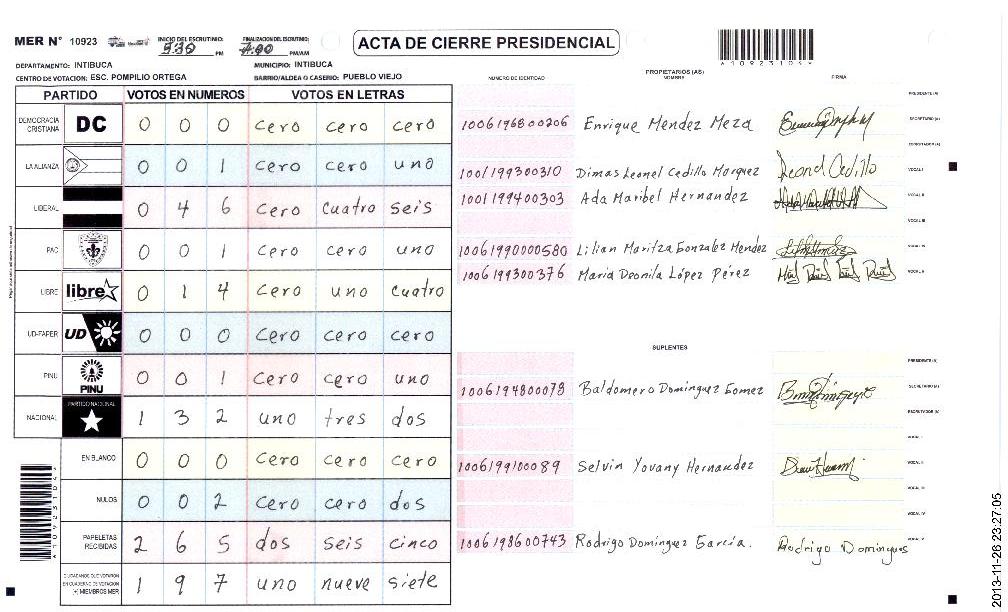 MER N° 10923 INICIO DEL ESCRUTINIO: 5:30 PM FINALIZACION DEL ESCRUTINIO: 7:00 PM/AM
ACTA DE CIERRE PRESIDENCIAL
DEPARTAMENTO: INTIBUCA MUNICIPIO: INTIBUCA
CENTRO DE VOTACION: ESC. POMPILIO ORTEGA BARRIO/ALDEA O CASERIO: PUEBLO VIEJO
PARTIDO VOTOS EN NUMEROS VOTOS EN LETRAS
DEMOCRACIA CRISTIANA DC 0 0 0 cero cero cero
LA ALIANZA 0 0 1 cero cero uno
LIBERAL 0 4 6 cero cuatro seis
PAC 0 0 1 cero cero uno
LIBRE libre 0 1 4 cero uno cuatro
UD-FAPER UD 0 0 0 cero cero cero
PINU PINU 0 0 1 cero cero uno
NACIONAL PARTIDO NACIONAL 1 3 2 uno tres dos
EN BLANCO 0 0 0 cero cero cero
NULOS 0 0 2 cero cero dos
PAPELETAS RECIBIDAS 2 6 5 dos seis cinco
CIUDADANOS QUE VOTARON
EN CUADERNO DE VOTACION
(+) MIEMBROS MER 1 9 7 uno nueve siete
PROPIETARIOS (AS)
NUMERO DE IDENTIDAD NOMBRE FIRMA
PRESIDENTE (A)
1006196800206 Enrique Mendez Meza SECRETARIO (A)
ESCRUTADOR (A)
1001199300310 Dimas Leonel Cedillo Marquez Leonel Cedillo VOCAL I
1001199400303 Ada Maribel Hernandez VOCAL II
VOCAL III
10061990000580 Lilian Maritza Gonzalez Mendez VOCAL IV
1006199300376 Maria Deonila López Pérez VOCAL V
SUPLENTES
PRESIDENTE (A)
1006194800078 Baldomero Dominguez Gomez SECRETARIO (A)
ESCRUTADOR (A)
VOCAL I
1006199100089 Selvin Yovany Hernandez VOCAL II
VOCAL III
VOCAL IV
1006198600743 Rodrigo Dominguez Garcia. Rodrigo Domingues VOCAL V
2013-11-26 23:27:05